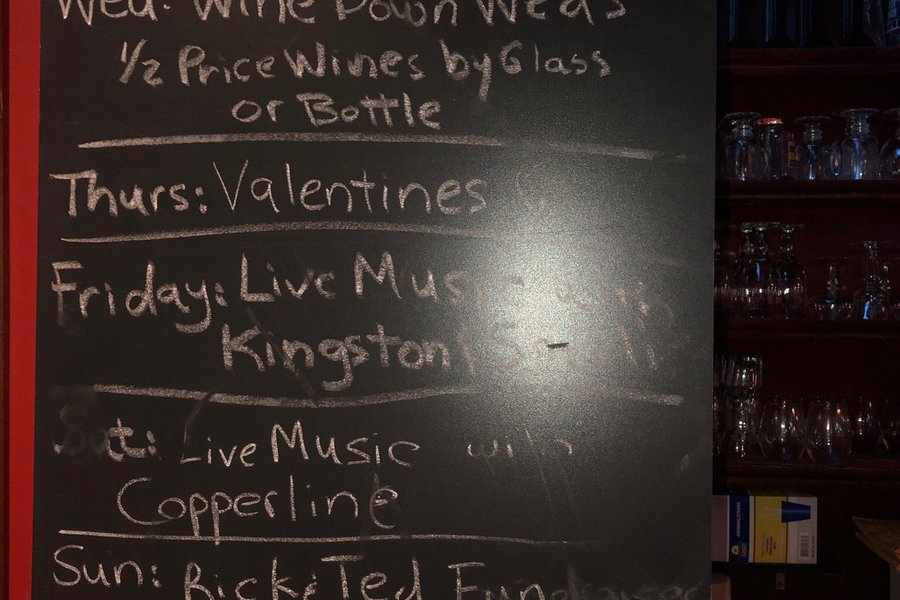 Wed: Wine Down Weds
1/2 Price Wines by Glass
or Bottle
Thurs: Valentines
Friday: Live Music with
Kingston
Sat: Live Music with
Copperline
Sun: Rick & Ted Fundraiser